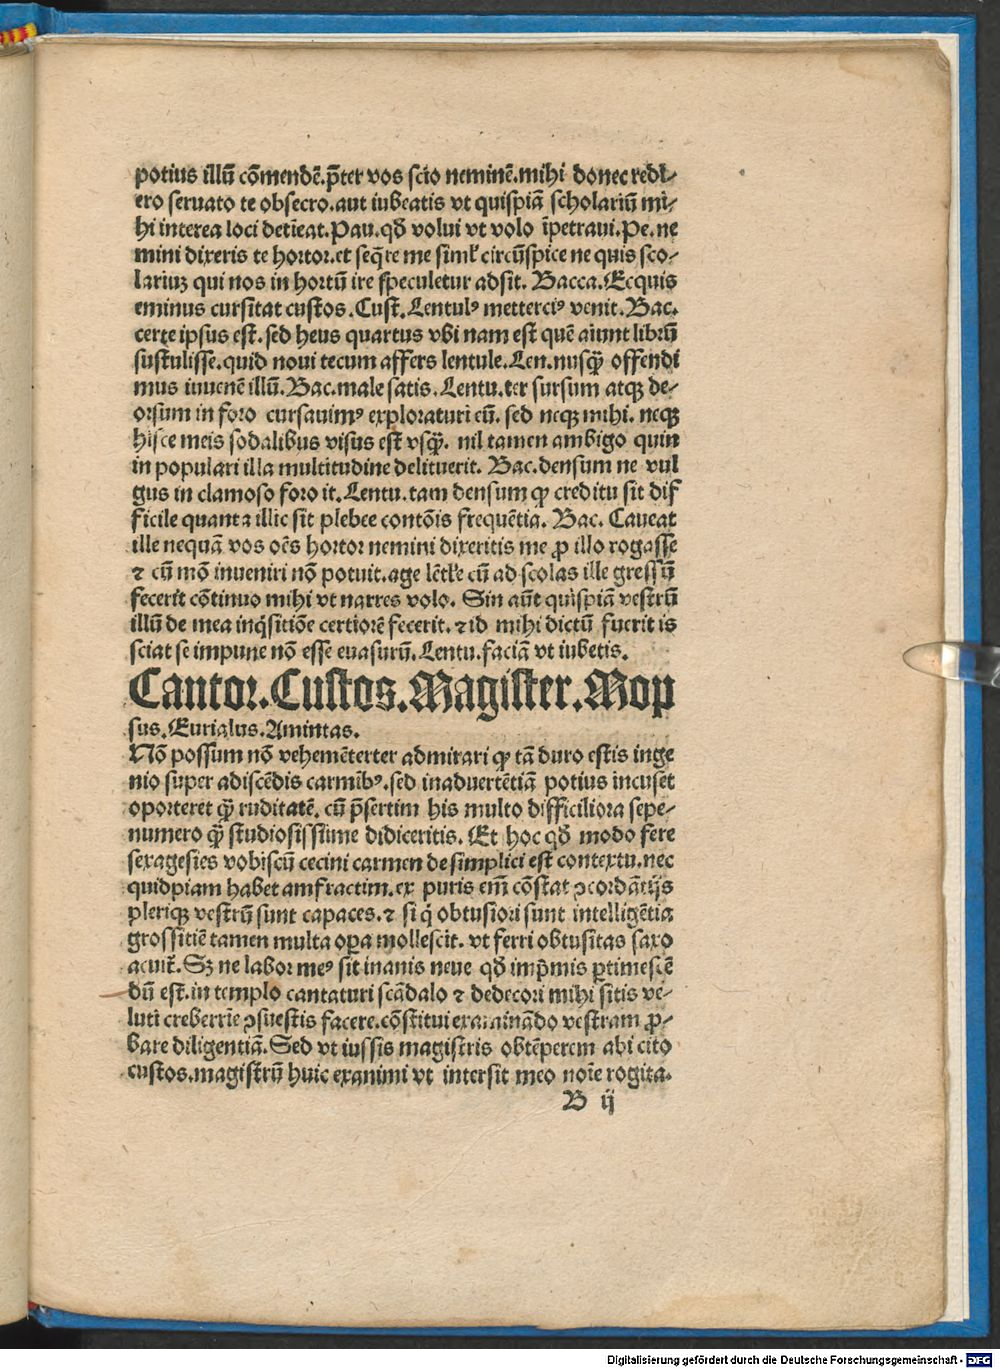 potius illū cōmendē.p̄ter vos scio neminē.mihi donec redi⸗
ero seruato te obsecro.aut iubeatis vt quispiā scholariū mi⸗
hi interea loci detīeat.Pau.qđ volui vt volo īpetraui.Pe.ne
mini dixeris te hortor.et seq̄re me siml̕ circūspice ne quis sco⸗
lariuꝫ qui nos in hortū ire speculetur adsit. Bacca.Ecquis
eminus cursitat custos.Cust.Lentulꝰ metterciꝰ venit.Bac.
certe ipsus est.sed heus quartus vbi nam est quē aiunt librū
sustulisse.quid noui tecum affers lentule.Len.nusq̄ȝ offendi
mus iuuenē illū.Bac.male satis.Lentu.ter sursum atqꝫ de⸗
orsum in foro cursauimꝰ exploraturi eū. sed neqꝫ mihi. neqꝫ
hisce meis sodalibus visus est vsq̄ȝ. nil tamen ambigo quin
in populari illa multitudine delituerit. Bac.densum ne vul
gus in clamoso foro it.Lentu.tam densum ꝙ creditu sit dif
ficile quanta illic sit plebee contōis frequētia. Bac. Caueat
ille nequā vos oēs hortor nemini dixeritis me ꝓ illo rogasse
⁊ cū mō inueniri nō potuit.age lētl̕e cū ad scolas ille gressū
fecerit cōtinuo mihi vt narres volo. Sin aūt quispiā vestrū
illū de mea inq̇sitiōe certiorē fecerit.⁊ id mihi dictū fuerit is
sciat se impune nō esse euasurū.Lentu.faciā vt iubetis.
Cantor.Custos.Magister.Mop
sus.Eurialus.Amintas.
Nō possum nō vehemēterter admirari ꝙ tā duro estis inge
nio super adiscēdis carmībꝰ.sed inaduertētiā potius incuset
oporteret q̄ȝ ruditatē. cū p̄sertim his multo difficiliora sepe⸗
numero q̄ȝ studiosissime didiceritis. Et hoc qđ modo fere
sexagesies vobiscū cecini carmen de simplici est contextu.nec
quidpiam habet amfractim.ex puris em̄ cōstat ꝯcordātijs
pleriqꝫ vestrū sunt capaces.⁊ si q̇ obtusiori sunt intelligētia
grossitiē tamen multa oꝑa mollescit. vt ferri obtusitas saxo
acuit̄.Sꝫ ne labor meꝰ sit inanis neue qđ imp̄mis ꝑtimescē
dū est.in templo cantaturi scādalo ⁊ dedecori mihi sitis ve⸗
luti creberrīe ꝯsuestis facere.cōstitui examinādo vestram ꝓ⸗
bare diligentiā.Sed vt iussis magistris obtēperem abi cito
custos.magistrū huic exanimi vt intersit meo noīe rogita.
B ij
Digitalisierung gefördert durch die Deutsche Forschungsgemeinschaft - DFG